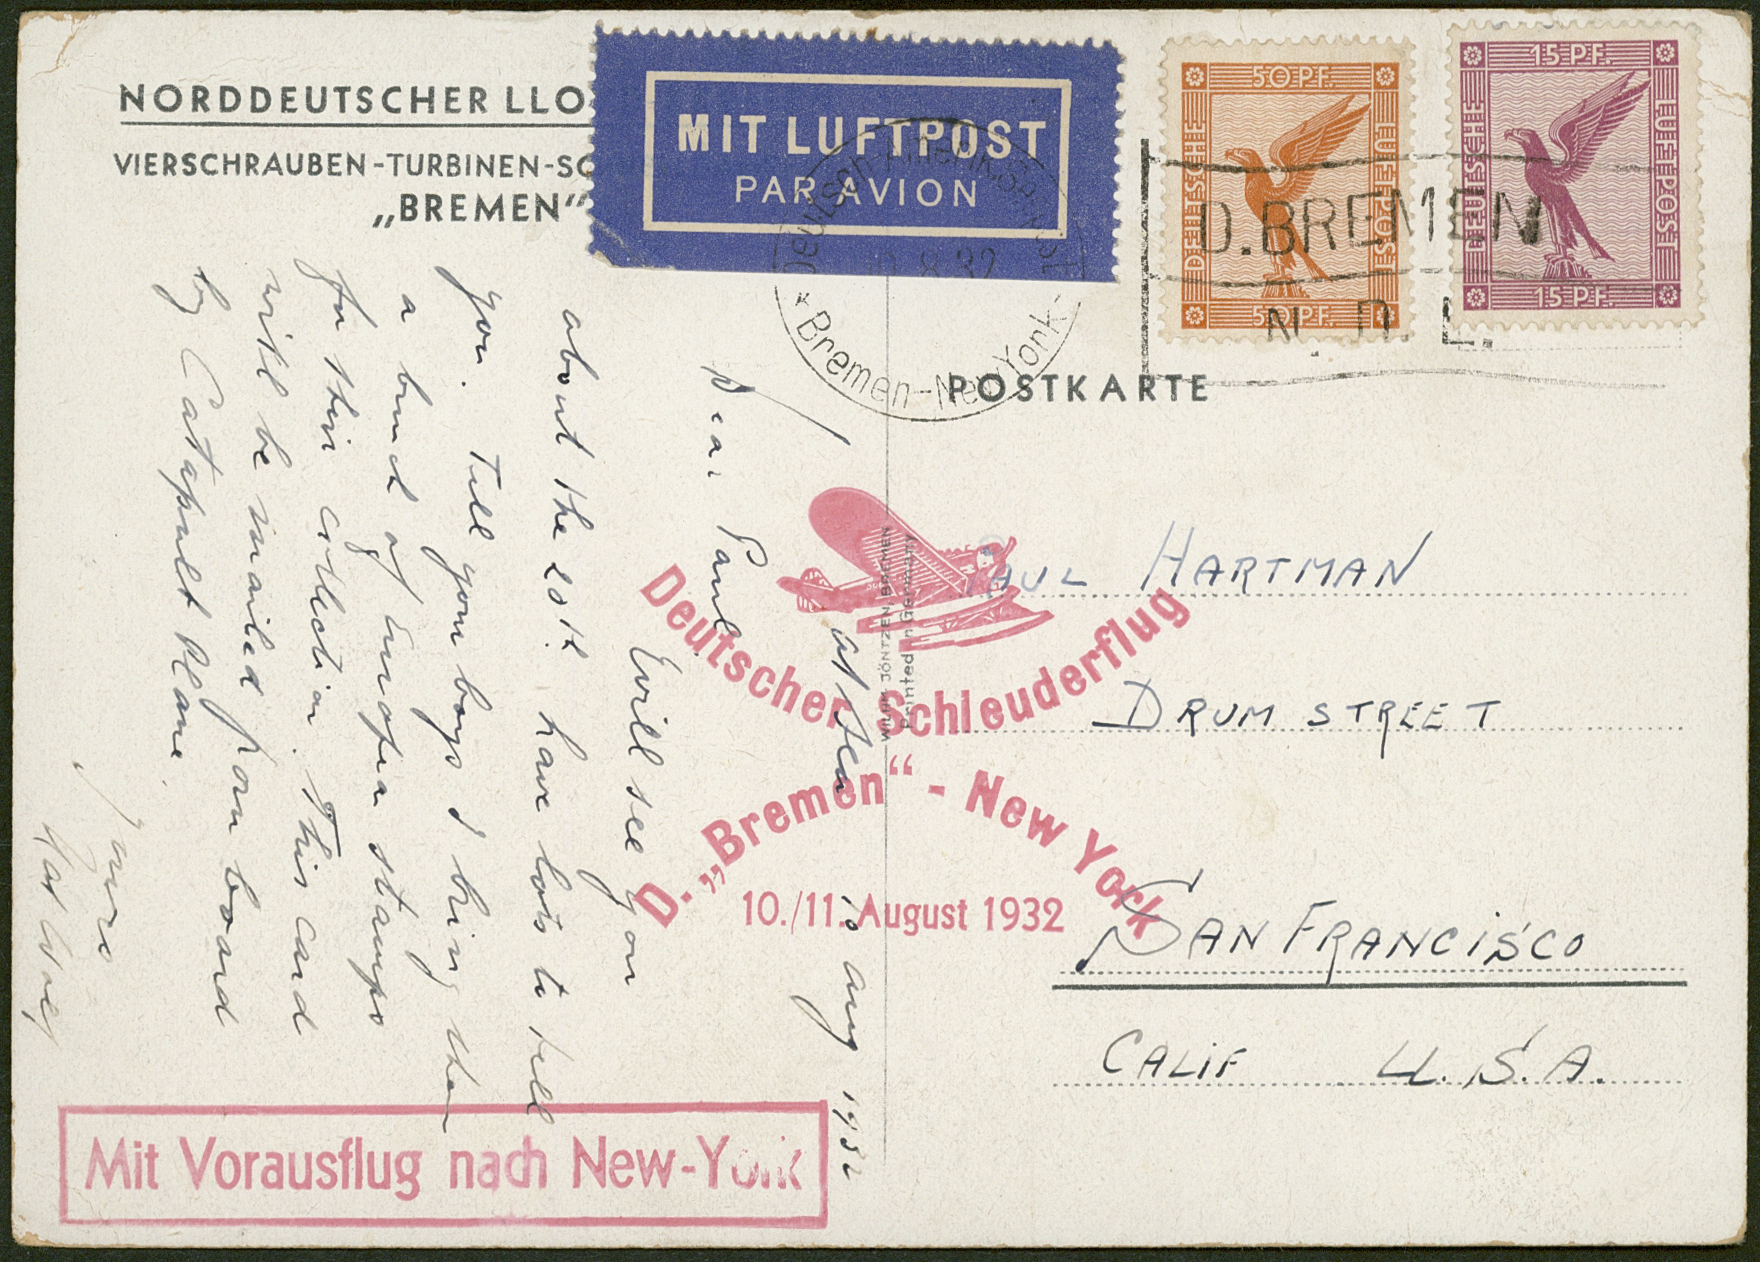 NORDDEUTSCHER LLO
VIERSCHRAUBEN-TURBINEN-SC
„BREMEN“
MIT LUFTPOST
PAR AVION
Deutsch-Amerik. Seepost
10.8.32
* Bremen-New York -
50 PF.
DEUTSCHE
LUFTPOST
50 PF.
15 PF.
DEUTSCHE
LUFTPOST
15 PF.
D. BREMEN
N. D. L.
POSTKARTE
At sea 10 Aug 1932
Dear Paul,
I will see you
about the 20th. have lots to tell
you. Tell your boys I bring them
a bunch of Europea stamps
for their collection. This card
will be mailed from board
by Catapult plane.
Yours
WILH. JÖNTZEN, BREMEN
Printed in Germany
Deutscher Schleuderflug
D. „Bremen“ - New York
10./11. August 1932
PAUL HARTMAN
DRUM STREET
SAN FRANCISCO
CALIF U.S.A.
Mit Vorausflug nach New-York